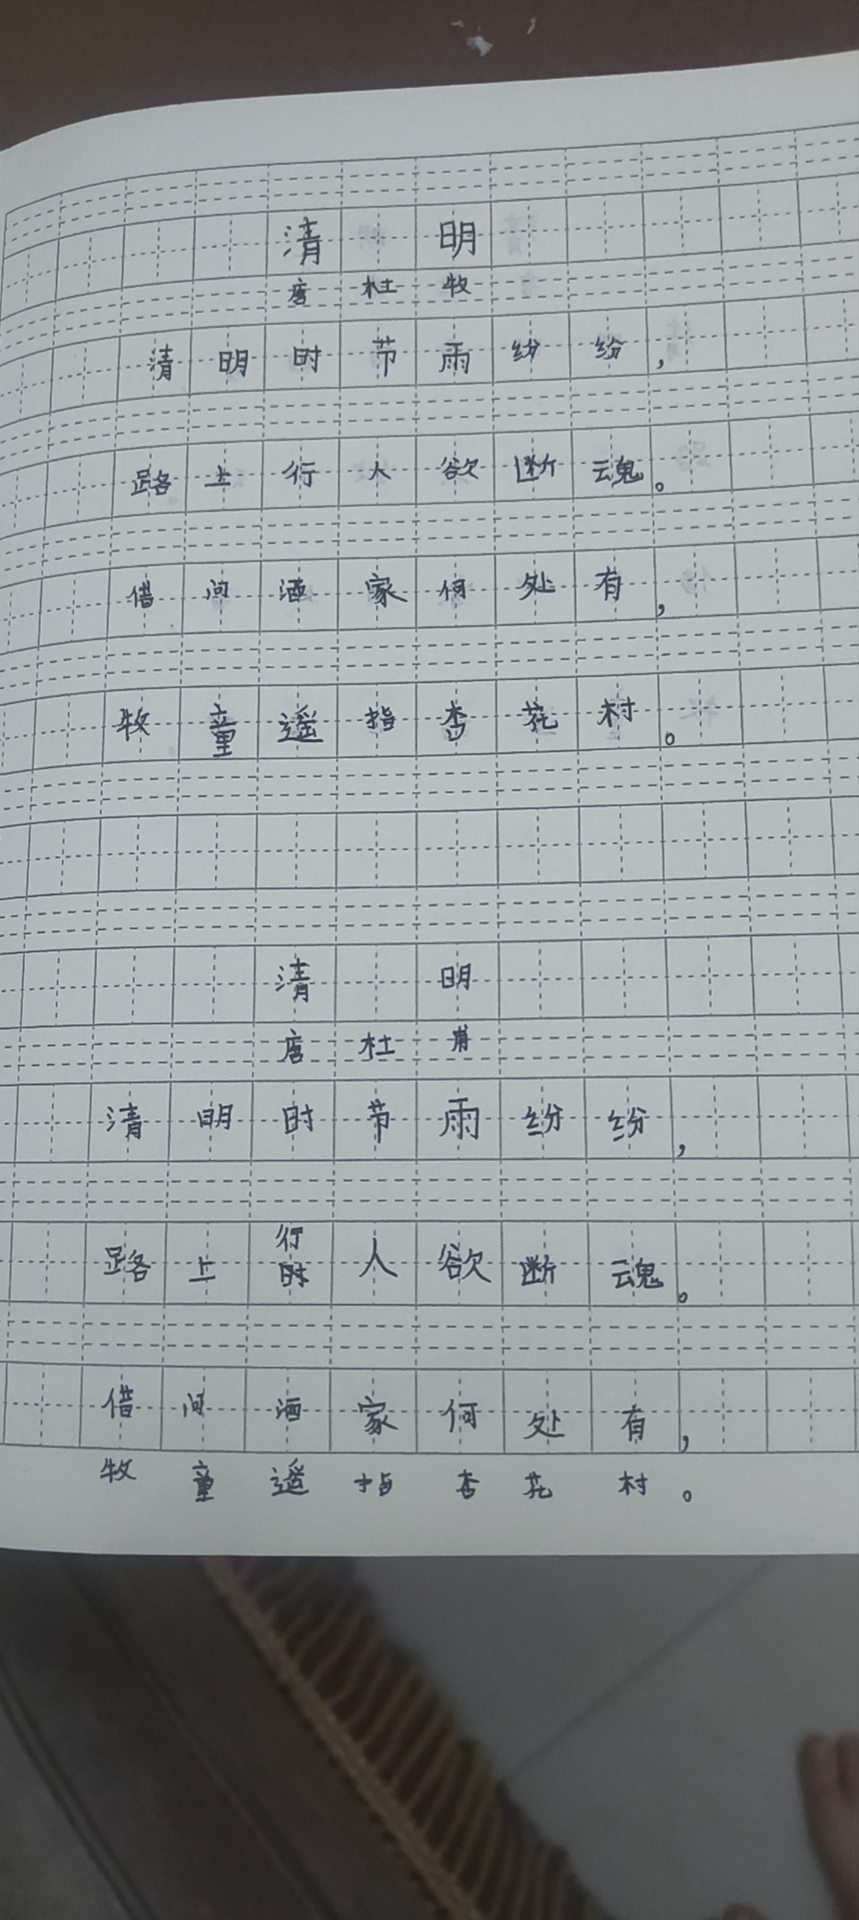 清 明
唐 杜 牧
清明时节雨纷纷，
路上行人欲断魂。
借问酒家何处有，
牧童遥指杏花村。
清 明
唐 杜
清明时节雨纷纷，
路上行人欲断魂。
借问酒家何处有，
牧童遥指杏花村。